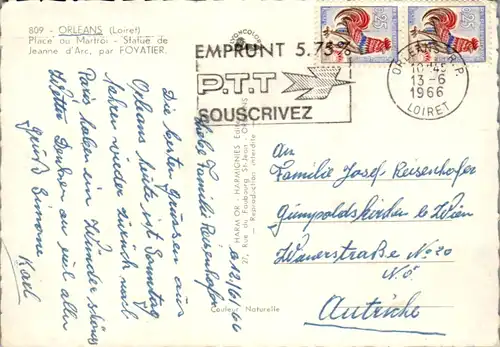 809 - ORLEANS (Loiret)
Place du Martroi - Statue de
Jeanne d'Arc, par FOYATIER.
EMPRUNT 5.75%
P.T.T
SOUSCRIVEZ
ORLEANS R.P.
13-6
1966
LOIRET
HARMOR - HARMIGNIES Edit
27, Rue du Faubourg St-Jean - ORLEANS
Reproduction interdite
Couleur Naturelle
13/6/66
Liebe Familie Reisenhofer
Die besten Grüssen aus
Orleans heute ist Sonntag
fahren wieder zurück nach
Paris haben ein Wunder schönes
Wetter Denken an viel allen
Gruß Simone
Karl
An
Familie Josef Reisenhofer
Gumpoldskirchen b Wien
Wienerstraße No 20
N.Ö.
Autriche